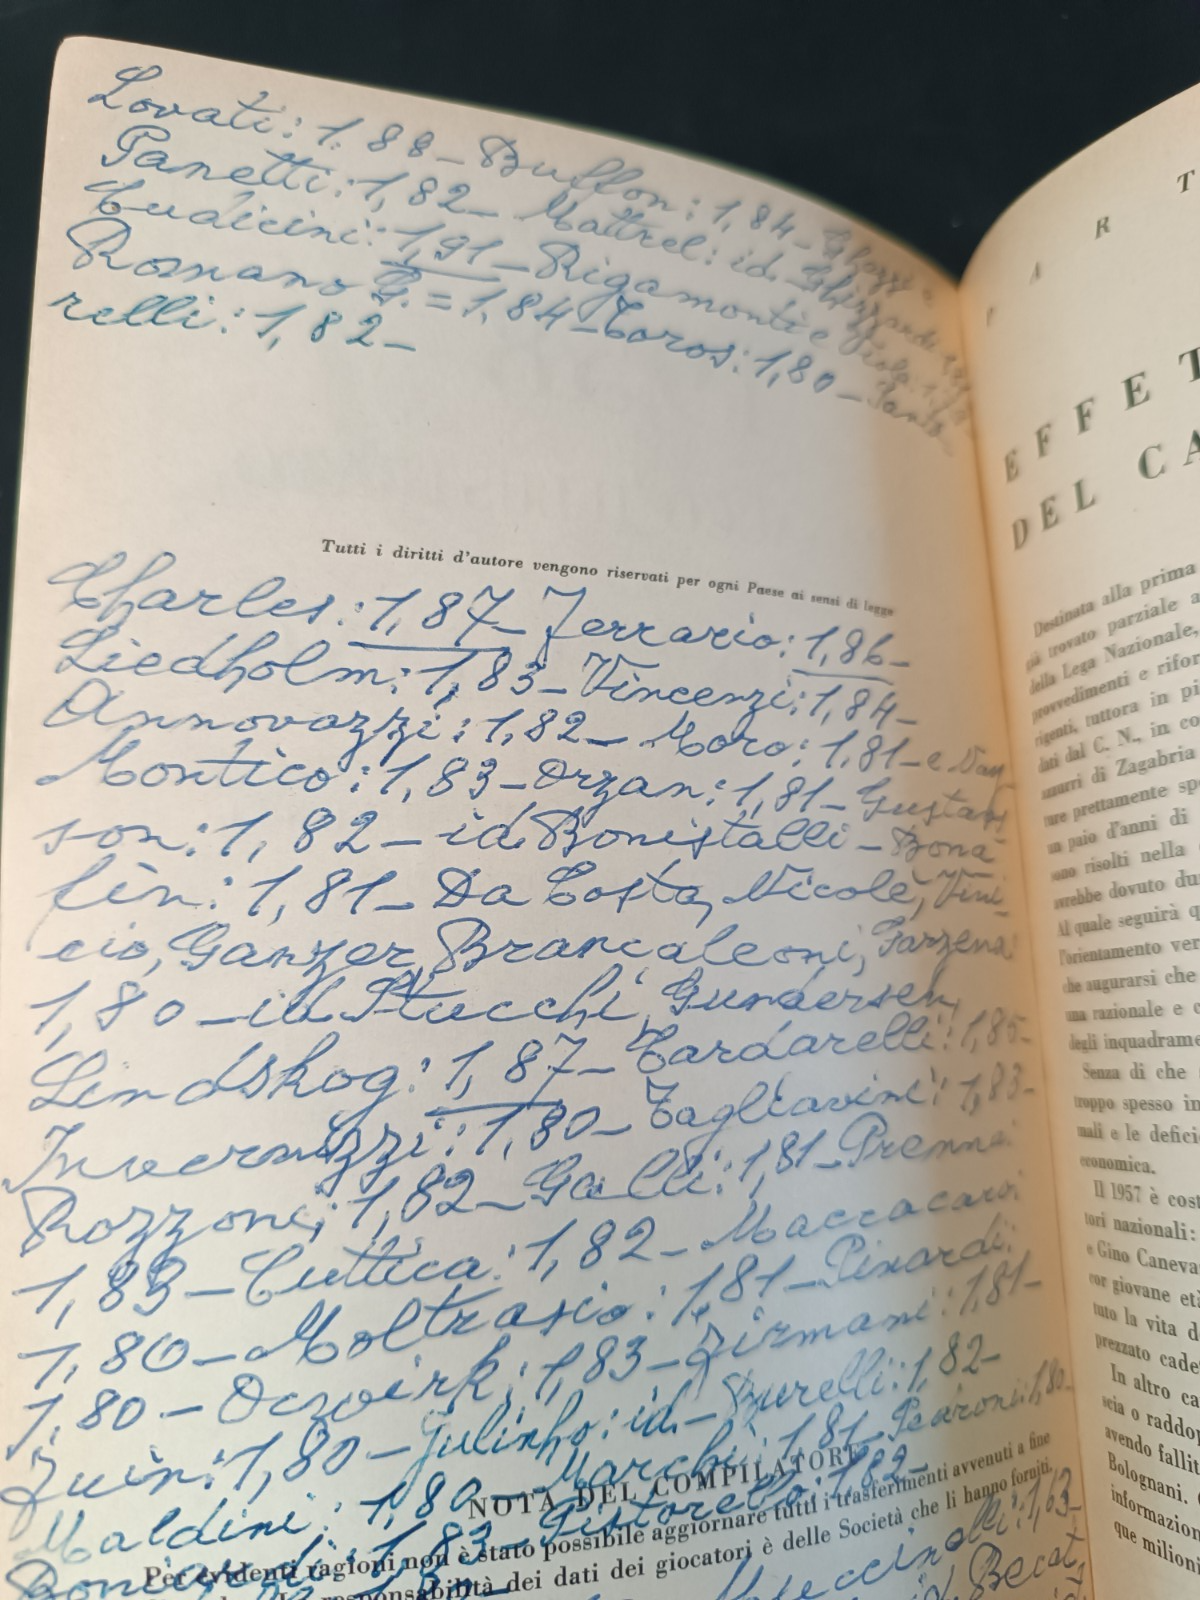 Lovati: 1,88 - Buffon: 1,84 - Ghezzi e
Panetti: 1,82 - Mattrel: id. Ghizzardi
Cudicini: 1,91 - Rigamonti e Viola:
Romano G. = 1,84 - Toros: 1,80 - Santo-
relli: 1,82 -
Tutti i diritti d'autore vengono riservati per ogni Paese ai sensi di legge
Charles: 1,87 - Ferrario: 1,86 -
Liedholm: 1,83 - Vincenzi: 1,84 -
Annovazzi: 1,82 - Moro: 1,81 - e
Montico: 1,83 - Orzan: 1,81 - Gustavs
son: 1,82 - id. Bonistalli - Bona
fin: 1,81 - Da Costa, Nicolè, Vini-
cio, Ganzer, Brancaleoni, Garzena
1,80 - id. Stucchi, Gundersen,
Lindskog: 1,87 - Tardarelli: 1,85 -
Invernizzi: 1,80 - Tagliavini: 1,83 -
Rozzoni: 1,82 - Galli: 1,81 - Prenna:
1,83 - Cuttica: 1,82 - Maccacaro:
1,80 - Moltrasio: 1,81 - Pinardi:
1,80 - Ocwirk: 1,83 - Firmani: 1,81 -
Zuin: 1,80 - Julinho: id. - Burelli: 1,82 -
Maldini: 1,80 - Marchi: 1,81 - Pedroni: 1,80 -
NOTA DEL COMPILATORE
1,83 - Pistorello: 1,82 -
Per evidenti ragioni non è stato possibile aggiornare tutti i trasferimenti avvenuti a fine
responsabilità dei dati dei giocatori è delle Società che li hanno forniti.
T
R
A
P
EFFET
DEL CA
Destinata alla prima
già trovato parziale a
della Lega Nazionale,
provvedimenti e rifor
rigenti, tuttora in pi
dati dal C. N., in co
azzurri di Zagabria
ture prettamente spe
un paio d'anni di
sono risolti nella
avrebbe dovuto du
Al quale seguirà q
l'orientamento ver
che augurarsi che
una razionale e c
degli inquadrame
Senza di che
troppo spesso in
mali e le defici
economica.
Il 1957 è cost
tori nazionali:
e Gino Caneva
cor giovane età
tuto la vita d
prezzato cade
In altro ca
scia o raddop
avendo fallit
Bolognani. C
informazion
que milioni